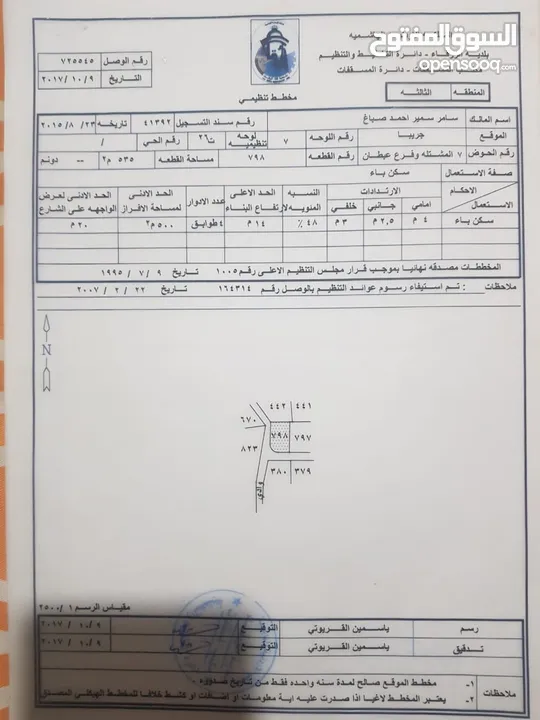 السوق المفتوح
opensooq.com
رقم الوصل ٧٢٥٥٤٥
التاريخ ٢٠١٧/١٠/٩
مخطط تنظيمي
المنطقه الثالثه
اسم المالك سامر سمير احمد صباغ رقم سند التسجيل ٤١٣٩٢ تاريخه ٢٠١٥/٨/٢٣
الموقع جريبا رقم اللوحه ٧ لوحة تنظيميه ٢٦ت رقم الحي /
رقم الحوض ٧ المشتله وفرع عيطان رقم القطعه ٧٩٨ مساحة القطعه ٥٣٥ م٢ -- دونم
صفة الاستعمال سكن باء
الاحكام الارتدادات النسبه الحد الاعلى عدد الادوار الحد الادنى الحد الادنى لعرض
الاستعمال امامي جانبي خلفي المئويه لارتفاع البناء لمساحة الافراز الواجهه على الشارع
سكن باء ٤ م ٢,٥ م ٣ م ٤٨ % ١٤ م ٤ طوابق ٥٠٠ م٢ ٢٠ م
المخططات مصدقه نهائيا بموجب قرار مجلس التنظيم الاعلى رقم ١٠٠٥ تاريخ ١٩٩٥/٧/٩
ملاحظات : تم استيفاء رسوم عوائد التنظيم بالوصل رقم ١٦٤٣١٤ تاريخ ٢٠٠٧/٢/٢٢
N
٤٤٢ ٤٤١
٦٧٠
٧٩٨ ٧٩٧
٨٢٣
٣٨٠ ٣٧٩
وادي
مقياس الرسم ٢٥٠٠/١
رسم ياسمين القريوتي التوقيع ٢٠١٧/١٠/٩
تدقيق ياسمين القريوتي التوقيع ٢٠١٧/١٠/٩
ملاحظات
١- مخطط الموقع صالح لمدة سنه واحده فقط من تاريخ صدوره .
٢- يعتبر المخطط لاغيا اذا صدرت عليه اية معلومات او اضافات او كشط خلافا للمخطط الهيكلي المصدق